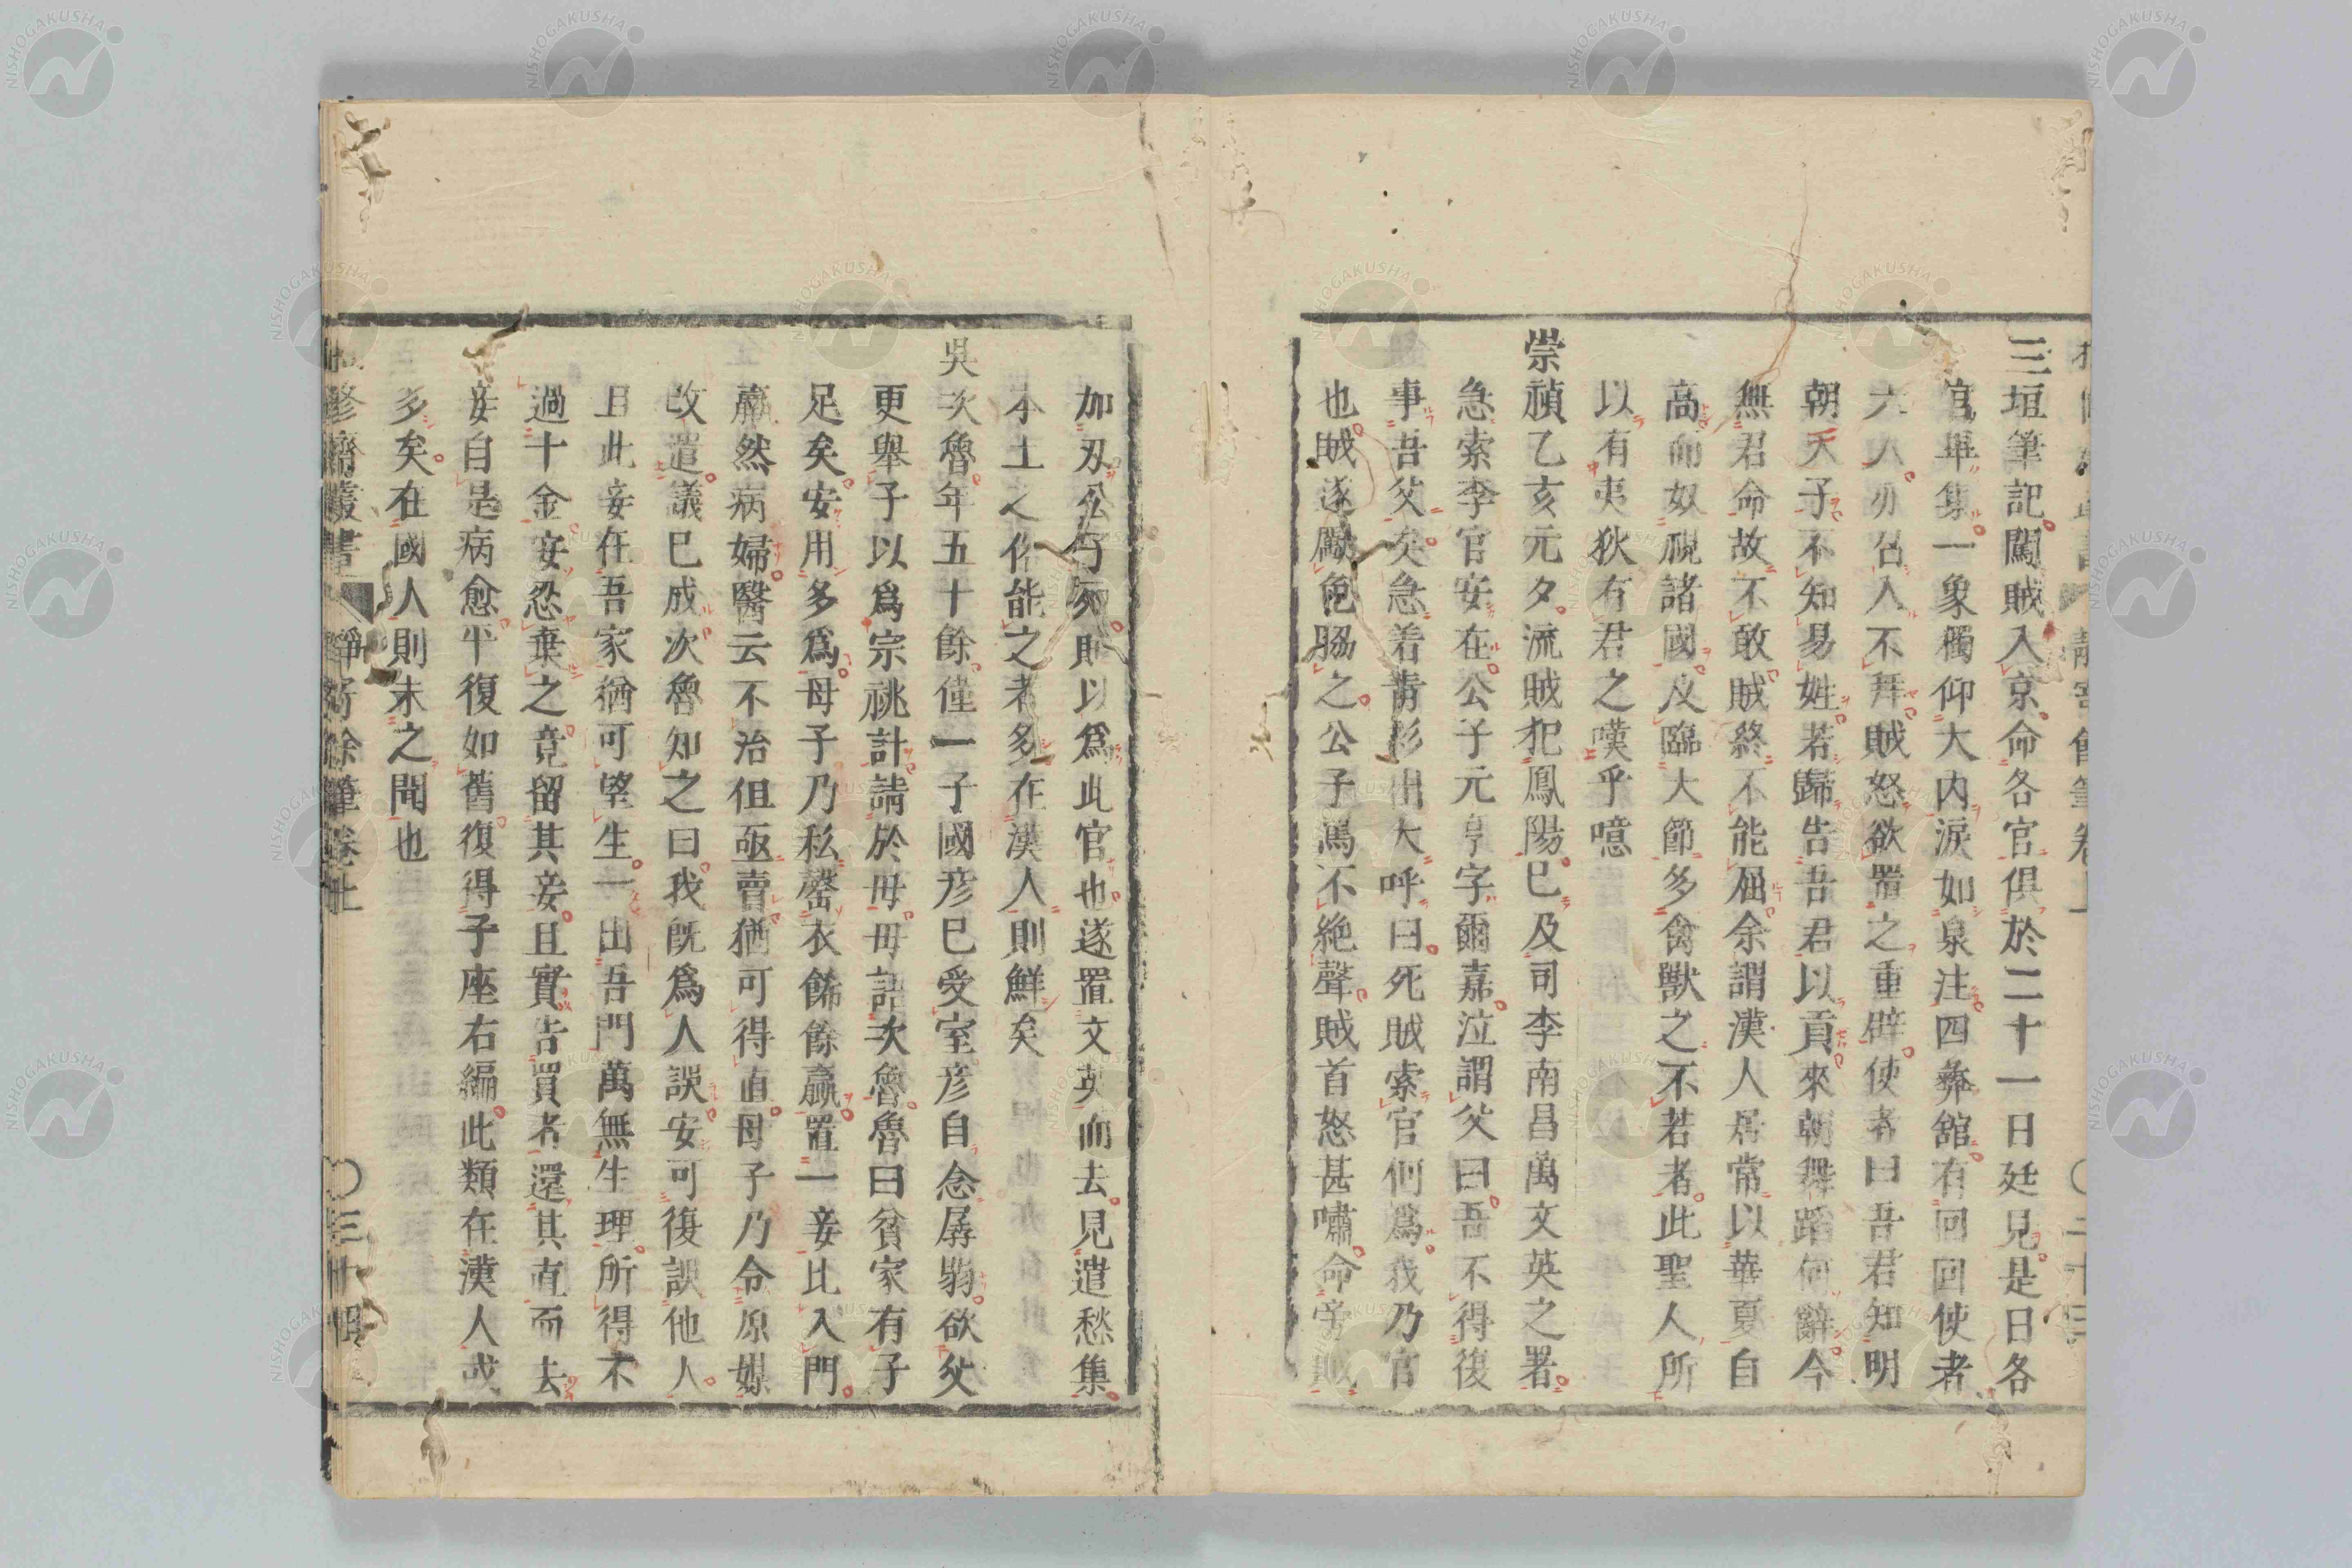 三垣筆記闖賊入京命各官俱於二十一日廷見是日各
官畢集一象獨仰大内淚如泉注四彝舘有回回使者
六人亦召入不拜賊怒欲置之重辟使者曰吾君知明
朝天子不知易姓若歸告吾君以貢來朝舞蹈何辭今
無君命故不敢賊終不能屈余謂漢人居常以華夏自
高而奴視諸國及臨大節多禽獸之不若者此聖人所
以有夷狄有君之嘆乎噫
崇禎乙亥元夕流賊犯鳳陽巳及司李南昌萬文英之署
急索李官安在公子元亨字爾嘉泣謂父曰吾不得復
事吾父矣急着青衫出大呼曰死賊索官何爲我乃官
也賊遂勵色脇之公子罵不絶聲賊首怒甚嘯命旁賊
加刃公子死賊以爲此官也遂置文英而去見遣愁集
本土之俗能之者多在漢人則鮮矣
吳次魯年五十餘僅一子國彦巳受室彦自念孱弱欲父
更舉子以爲宗祧計請於母母語次魯魯曰貧家有子
足矣安用多爲母子乃私罄衣餙餘贏置一妾比入門
羸然病婦醫云不治但亟賣猶可得直母子乃令原媒
改遣議巳成次魯知之曰我旣爲人誤安可復誤他人
且此妾在吾家猶可望生一出吾門萬無生理所得不
過十金安忍棄之竟留其妾且實告買者還其直而去
妾自是病愈平復如舊復得子座右編此類在漢人或
多矣在國人則未之聞也
修齋叢書 靜寄餘筆卷上 〇三十四